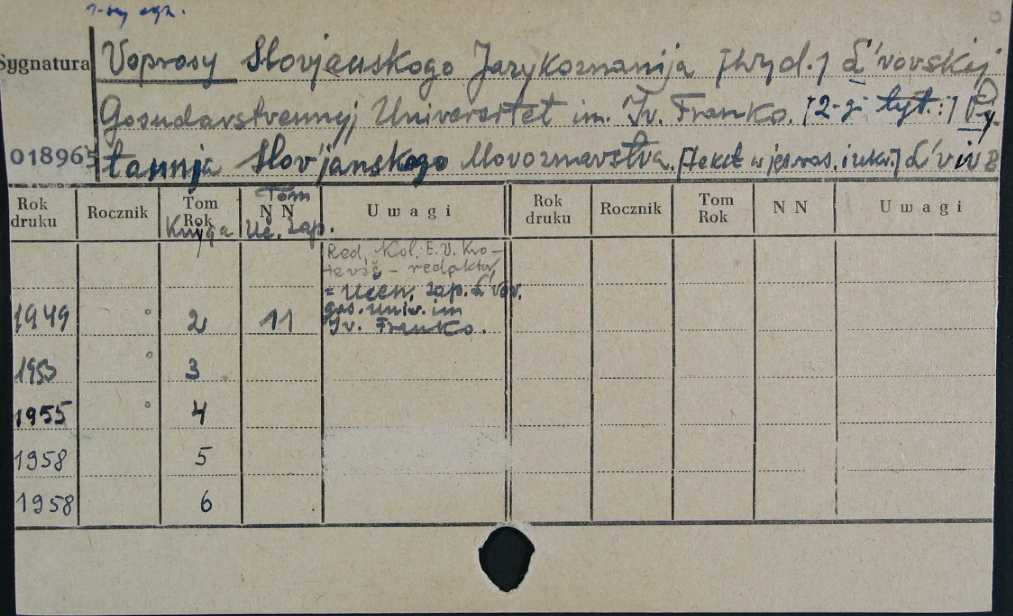 1-szy egz.
Sygnatura Voprosy Slovjanskogo Jazykoznanija [Wyd.] L'vovskij
Gosudarstvennyj Universitet im. Iv. Franko. [2-gi tyt.:] Py-
018965 tannja Slov'janskogo Movoznavstva. [Tekst w jęz. ros. i ukr.] L'viv
Rok druku Rocznik Tom Rok Księga Tom N N Uč. Zap. U w a g i Rok druku Rocznik Tom Rok N N U w a g i
Red. Kol. E. V. Kro-
tevič - redaktor,
= Učen. zap. L'vov.
gos. univ. im
1949 2 11 Iv. Franko.
1953 3
1955 4
1958 5
1958 6